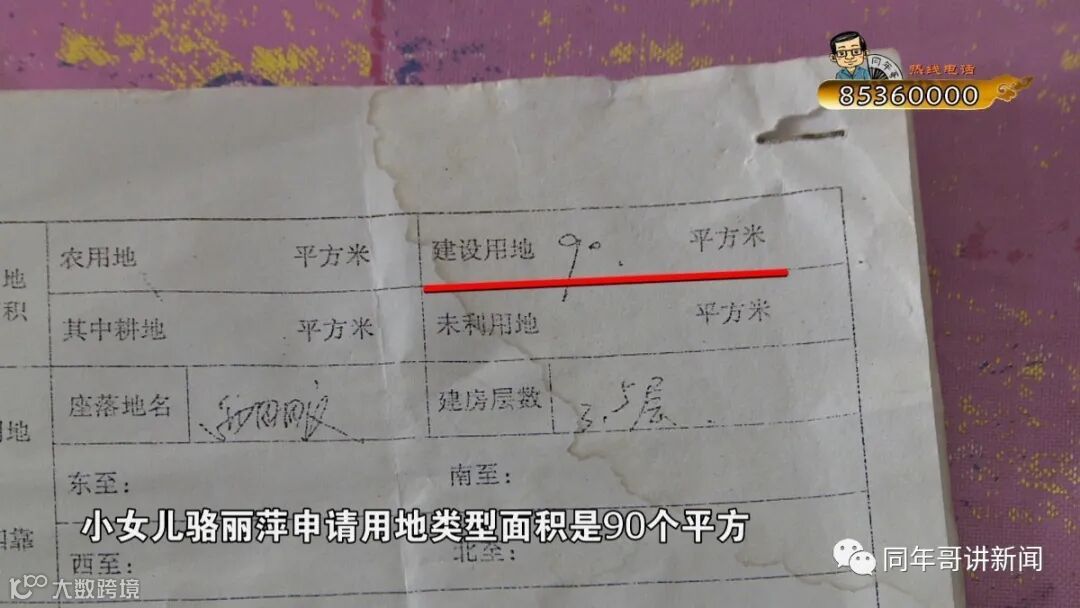 同年哥
热线电话
85360000
农用地 平方米 建设用地 90. 平方米
地
积
其中耕地 平方米 未利用地 平方米
座落地名 建房层数 3.5层
地
东至： 南至：
小女儿骆丽萍申请用地类型面积是90个平方
靠
西至： 北至：
同年哥讲新闻
大数跨境